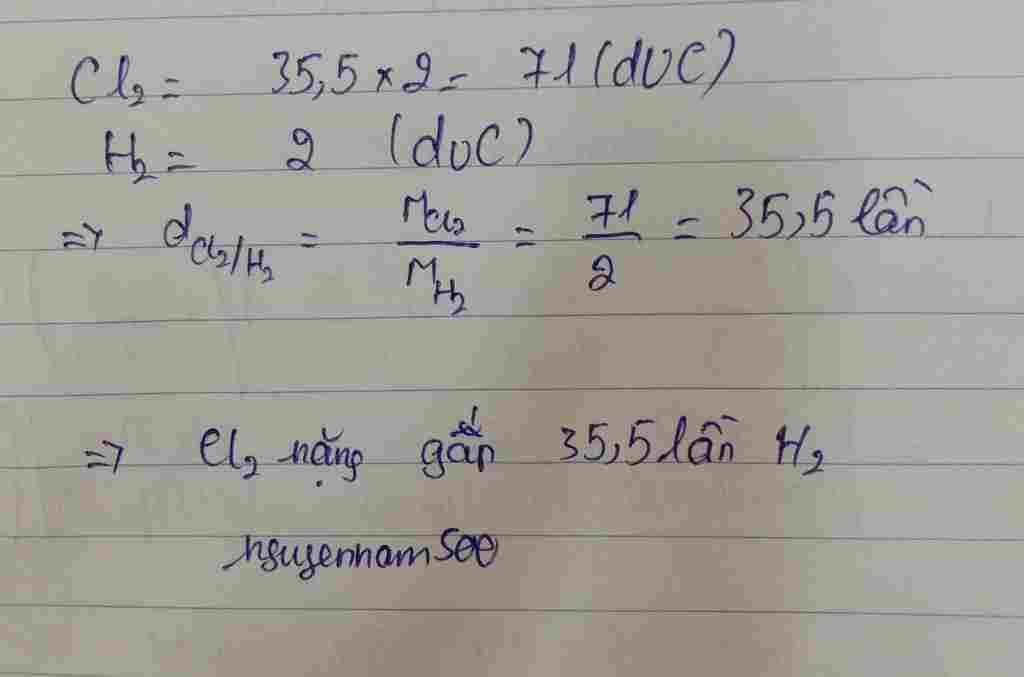 Cl₂ = 35,5 × 2 = 71 (đvC)
H₂ = 2 (đvC)
=> d Cl₂/H₂ = M Cl₂ / M H₂ = 71 / 2 = 35,5 lần
=> Cl₂ nặng gấp 35,5 lần H₂
nguyennam500